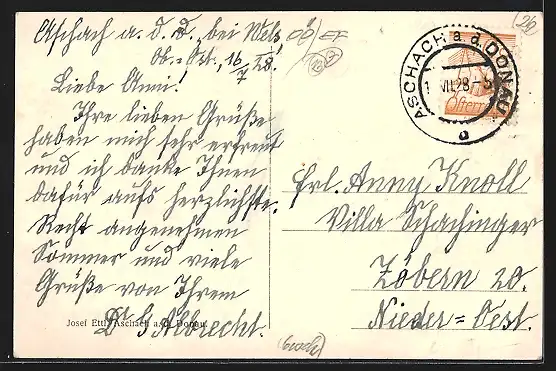 Aschach a. d. d. bei Wels
Ob.-Öst., 16/7 28.
Liebe Anni!
Ihre lieben Grüße
haben mich sehr erfreut
und ich danke Ihnen
dafür aufs herzlichste.
Recht angenehmen
Sommer und viele
Grüße von Ihrem
Dr G Albrecht.
Josef Ettl, Aschach a. d. Donau.
ASCHACH a. d. DONAU
VII.28
a
Österr
26
Frl. Anny Knoll
Villa Schachinger
Zöbern 20.
Nieder=Oest.